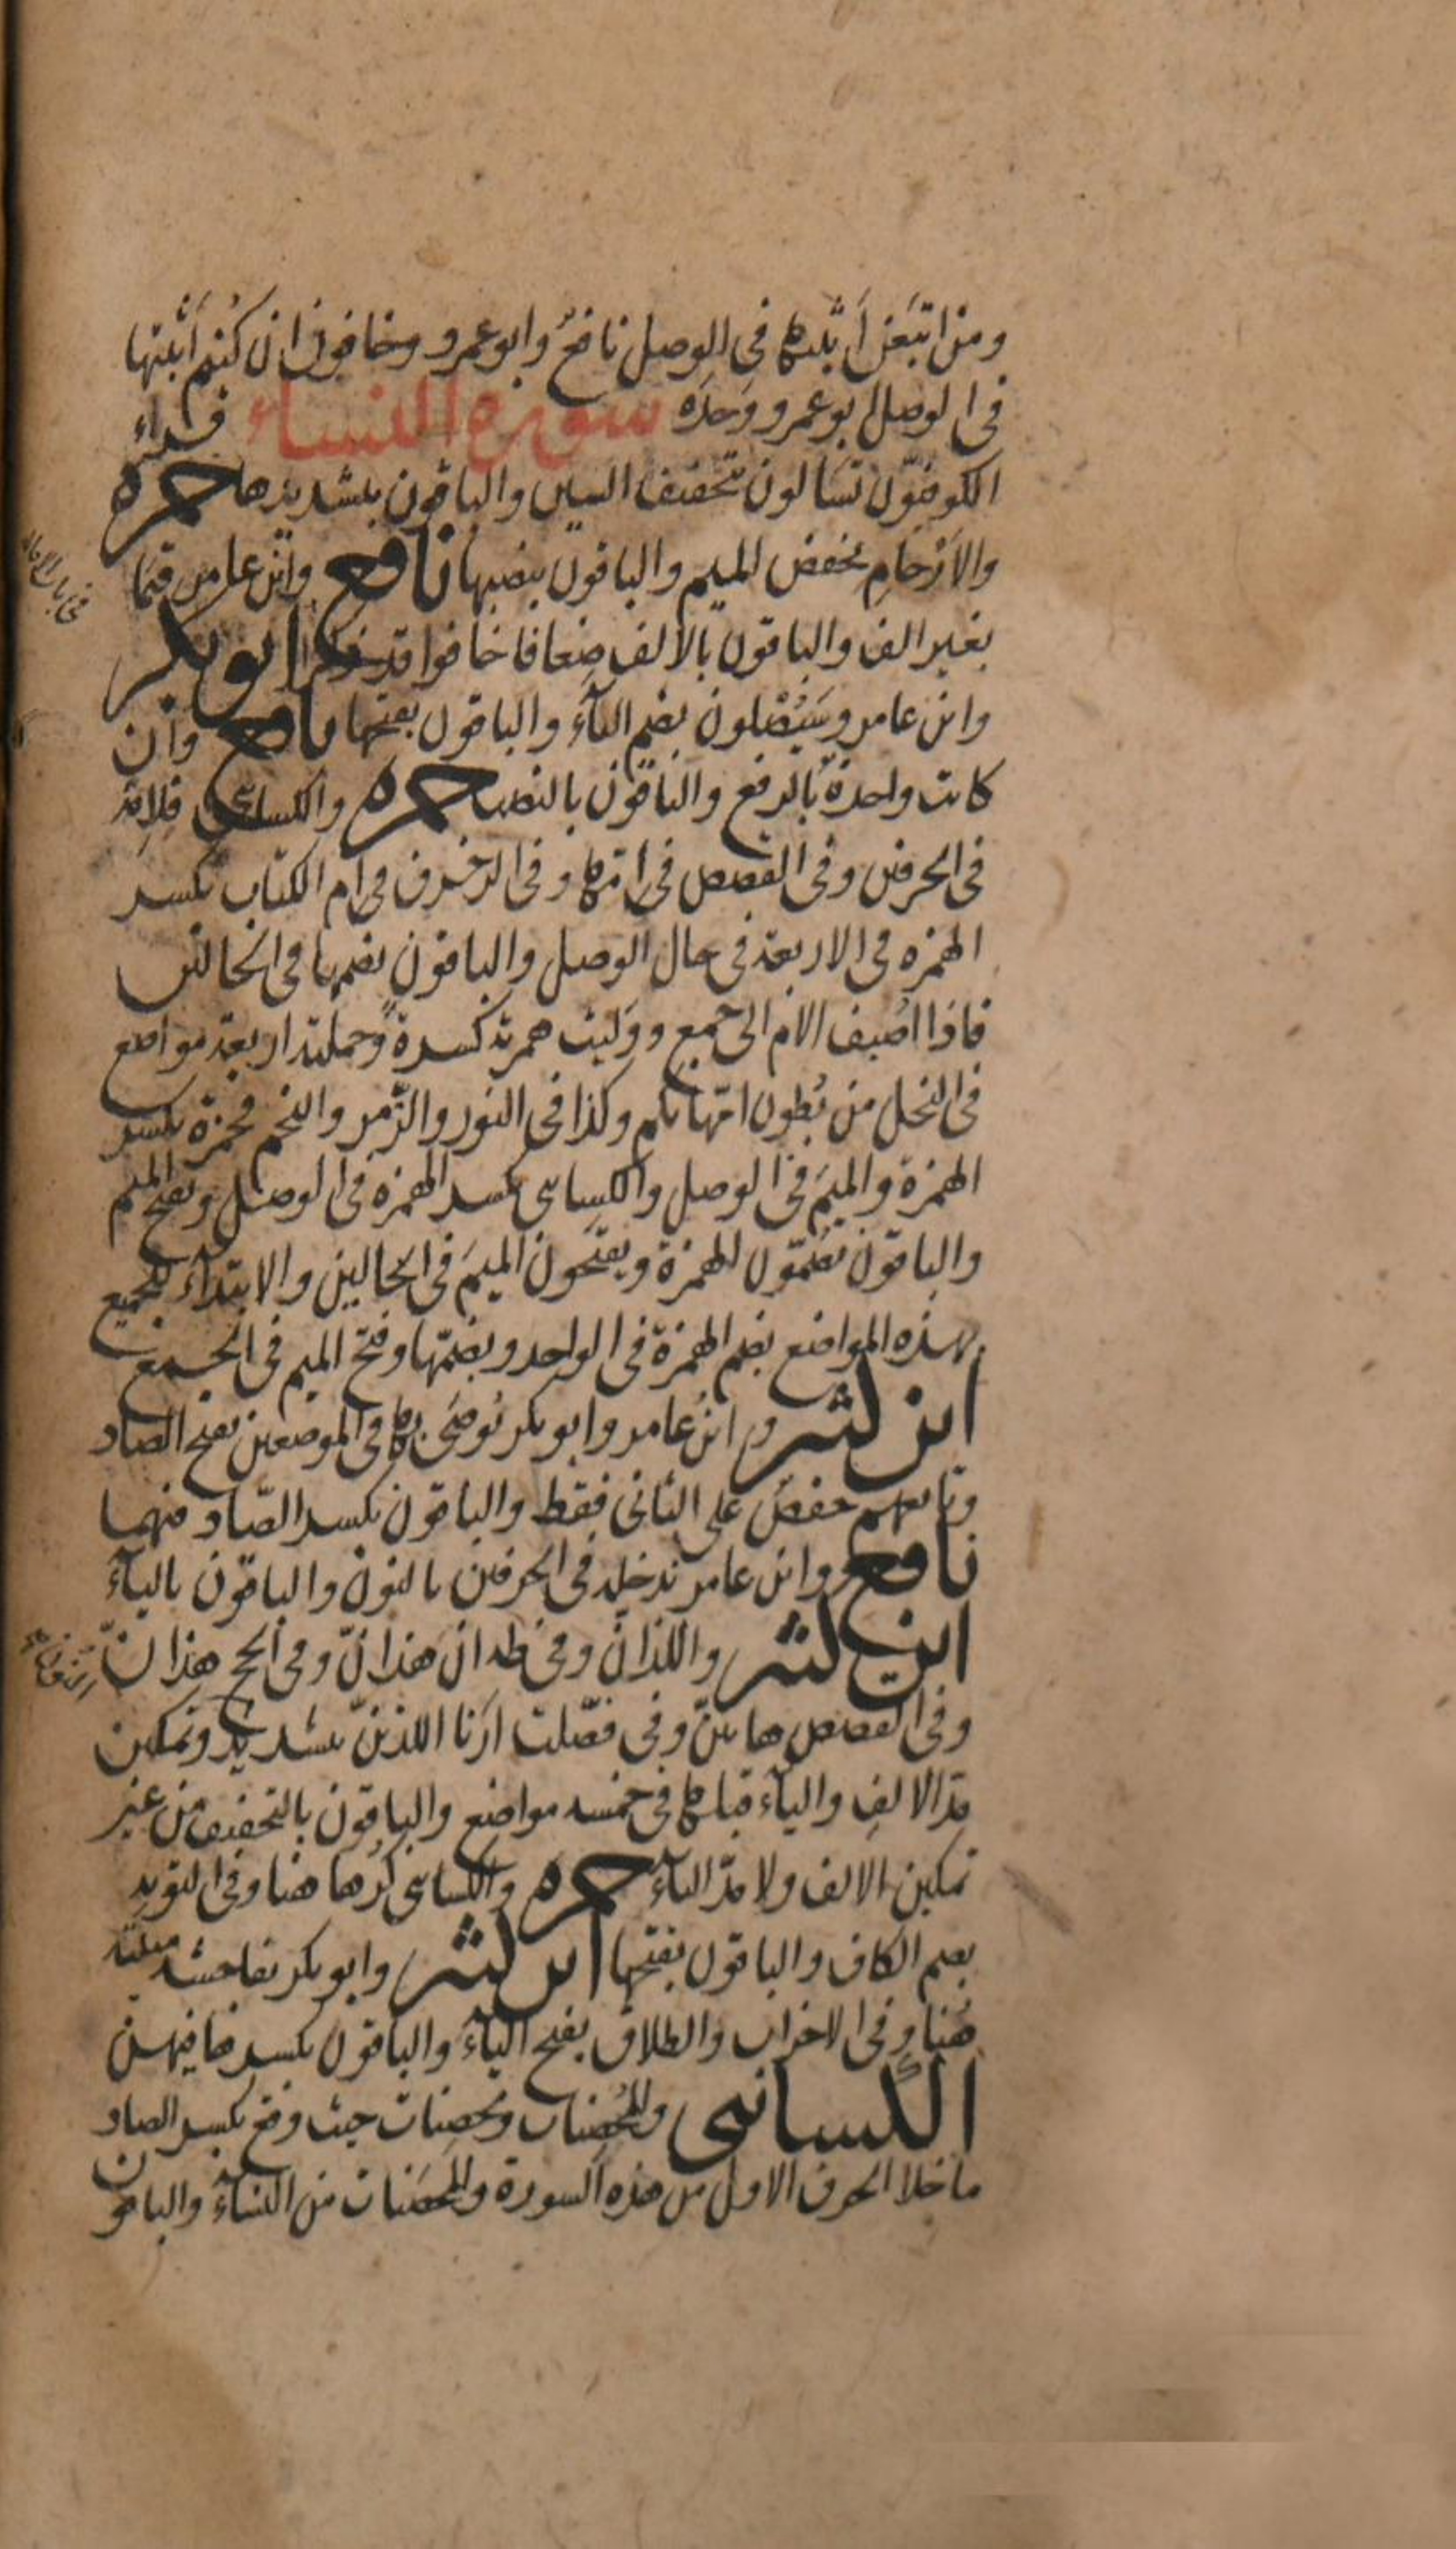 ومن اتبعن أثبتها في الوصل نافعٌ وابو عمرو وخافون ان كنتم أثبتها
في الوصل ابو عمرو وَحدَه سورة النساء قراء
الكوفيّون تسَالون بتخفيف السين والباقون بتشديدها حمزة
والأرْحامِ بخفض الميم والباقون بنصبها نافع وابن عامر قيَمًا
بغير الف والباقون بالالف ضعافا خافوا قد ذكرا ابو بكر
وابن عامر وسَيُصْلَون بضم اليآء والباقون بفتحها نافع وان
كانت واحدةٌ بالرفع والباقون بالنصب حمزه والكسائى فلاِمِّه
في الحرفين وفي القصص في امّها وفي الزخرف في ام الكتاب بكسر
الهمزه في الاربعة في حال الوصل والباقون بضمها في الحالتين
فاذا اضيف الام الى جمع ووَليت همزته كسرةً وجملته اربعة مواضع
في النحل من بُطون امّهاتكم وكذا في النور والزّمر والنجم فحمزة بكسر
الهمزة والميمَ في الوصل والكسائى بكسر الهمزه في الوصل وبفتح الميم
والباقون يضمّون الهمزة ويفتحون الميمَ في الحالين والابتدآء للجميع
بهذه المواضع بضم الهمزة في الواحد وبضمّها وفتح الميم في الجمع
ابن كثير وابن عامر وابو بكر يُوصَى بها في الموضعين بفتح الصاد
وتابعهم حفصٌ على الثانى فقط والباقون بكسر الصّاد فيهما
نافع وابن عامر ندخله في الحرفين بالنون والباقون باليآء
ابن كثير واللذانّ وفي طه ان هذانّ وفي الحج هذانّ
وفي القصص هاتينّ وفي فصّلت ارَنا اللذَينّ بتشديد وتمكين
مدّ الالف واليآء قبلها في خمسة مواضع والباقون بالتخفيف من غير
تمكين الالف ولا مدّ اليآء حمزه والكسائى كُرها هنا وفي التوبه
بضم الكاف والباقون بفتحها ابن كثير وابو بكر بفاحشة مبيّنة
هُنا وفي الاحزاب والطلاق بفتح اليآء والباقون بكسرها فيهن
الكسائى والمُحصِنات ومُحصِنات حيث وقع بكسر الصاد
ما خلا الحرف الاول من هذه السورة والمحصَنات من النسآء والباقون